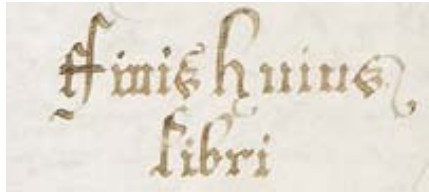 ffinis huius
libri